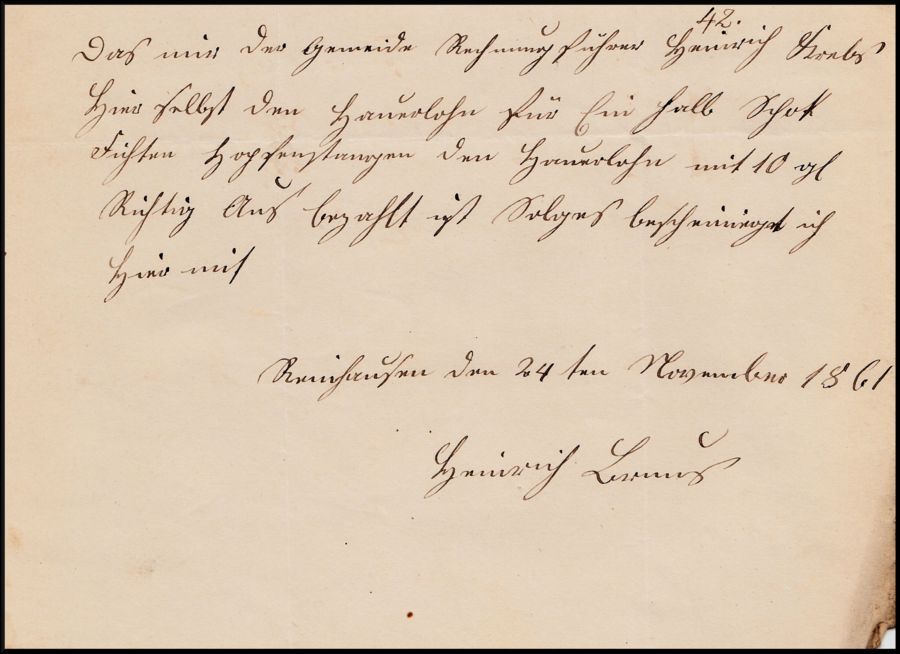 42.
Das mir der Gemeide Rechnungsführer Heinrich Krebs
Hier selbst den Hauerlohn für Ein halb Schok
Fichten Hopfenstangen den Hauerlohn mit 10 gl
Richtig Aus bezahlt ist Solges bescheiniget ich
Hier mit
Reinhausen den 24 ten November 1861
Heinrich